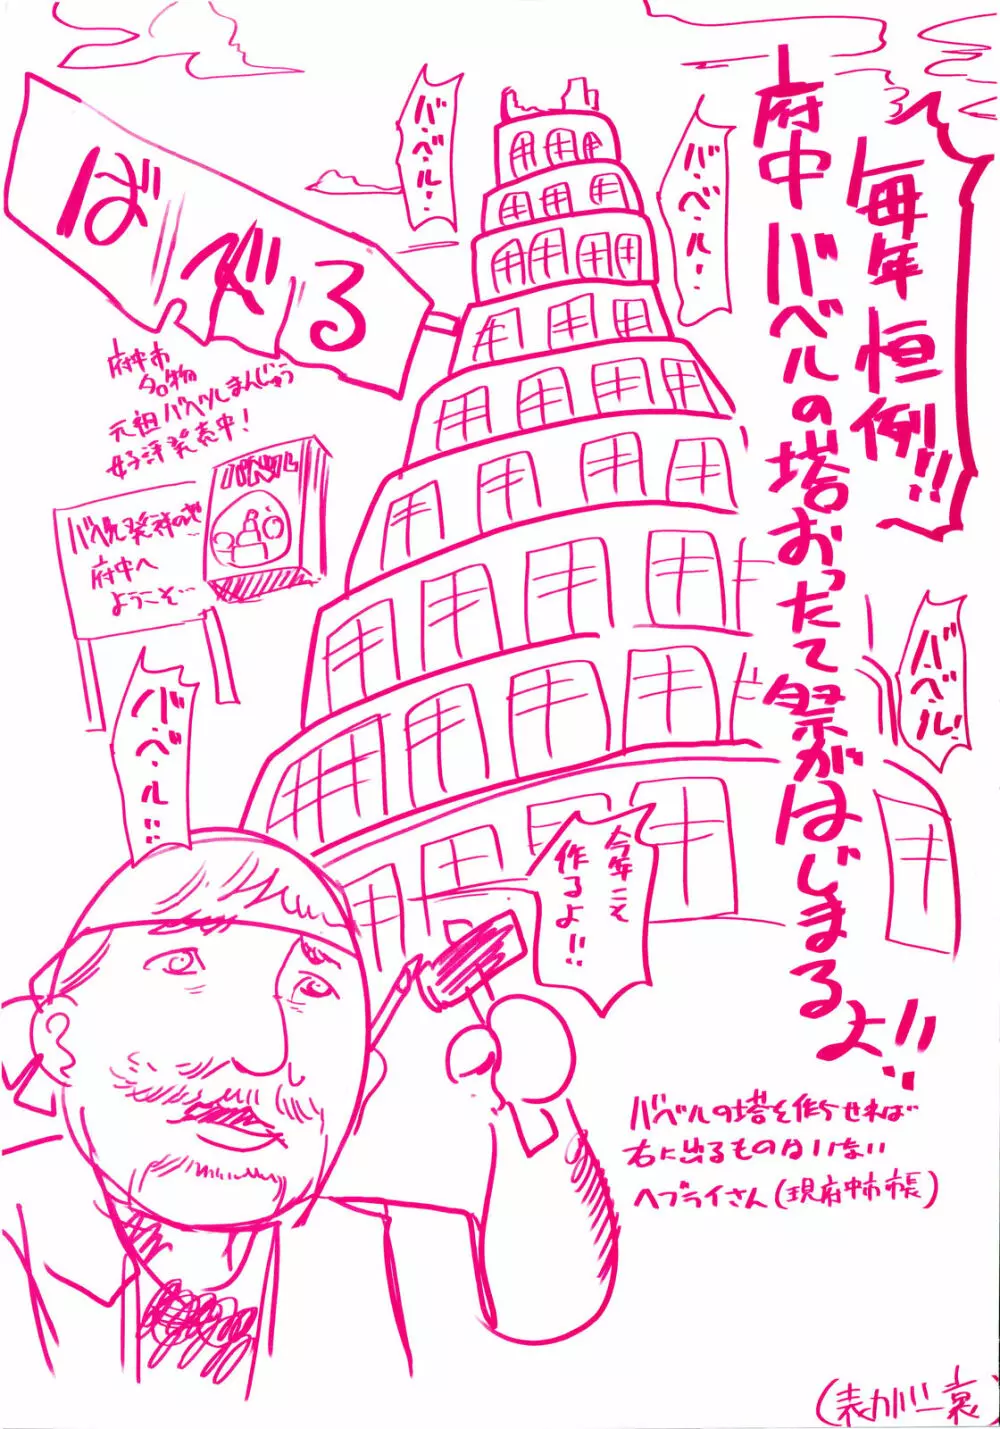 毎年恒例!!
府中バベルの塔おったて祭がはじまるよ!!
バ・ベ・ル!!
バ・ベ・ル!!
ばべる
府中市
名物
元祖バベルまんじゅう
好評発売中!
バベル
バベル発祥の地
府中へ
ようこそ…
バ・ベ・ル!
バ・ベ・ル!!
今年こそ
作るよ!!
バベルの塔を作らせれば
右に出るものはいない
ヘブライさん(現府中市市長)
(表カバー裏)